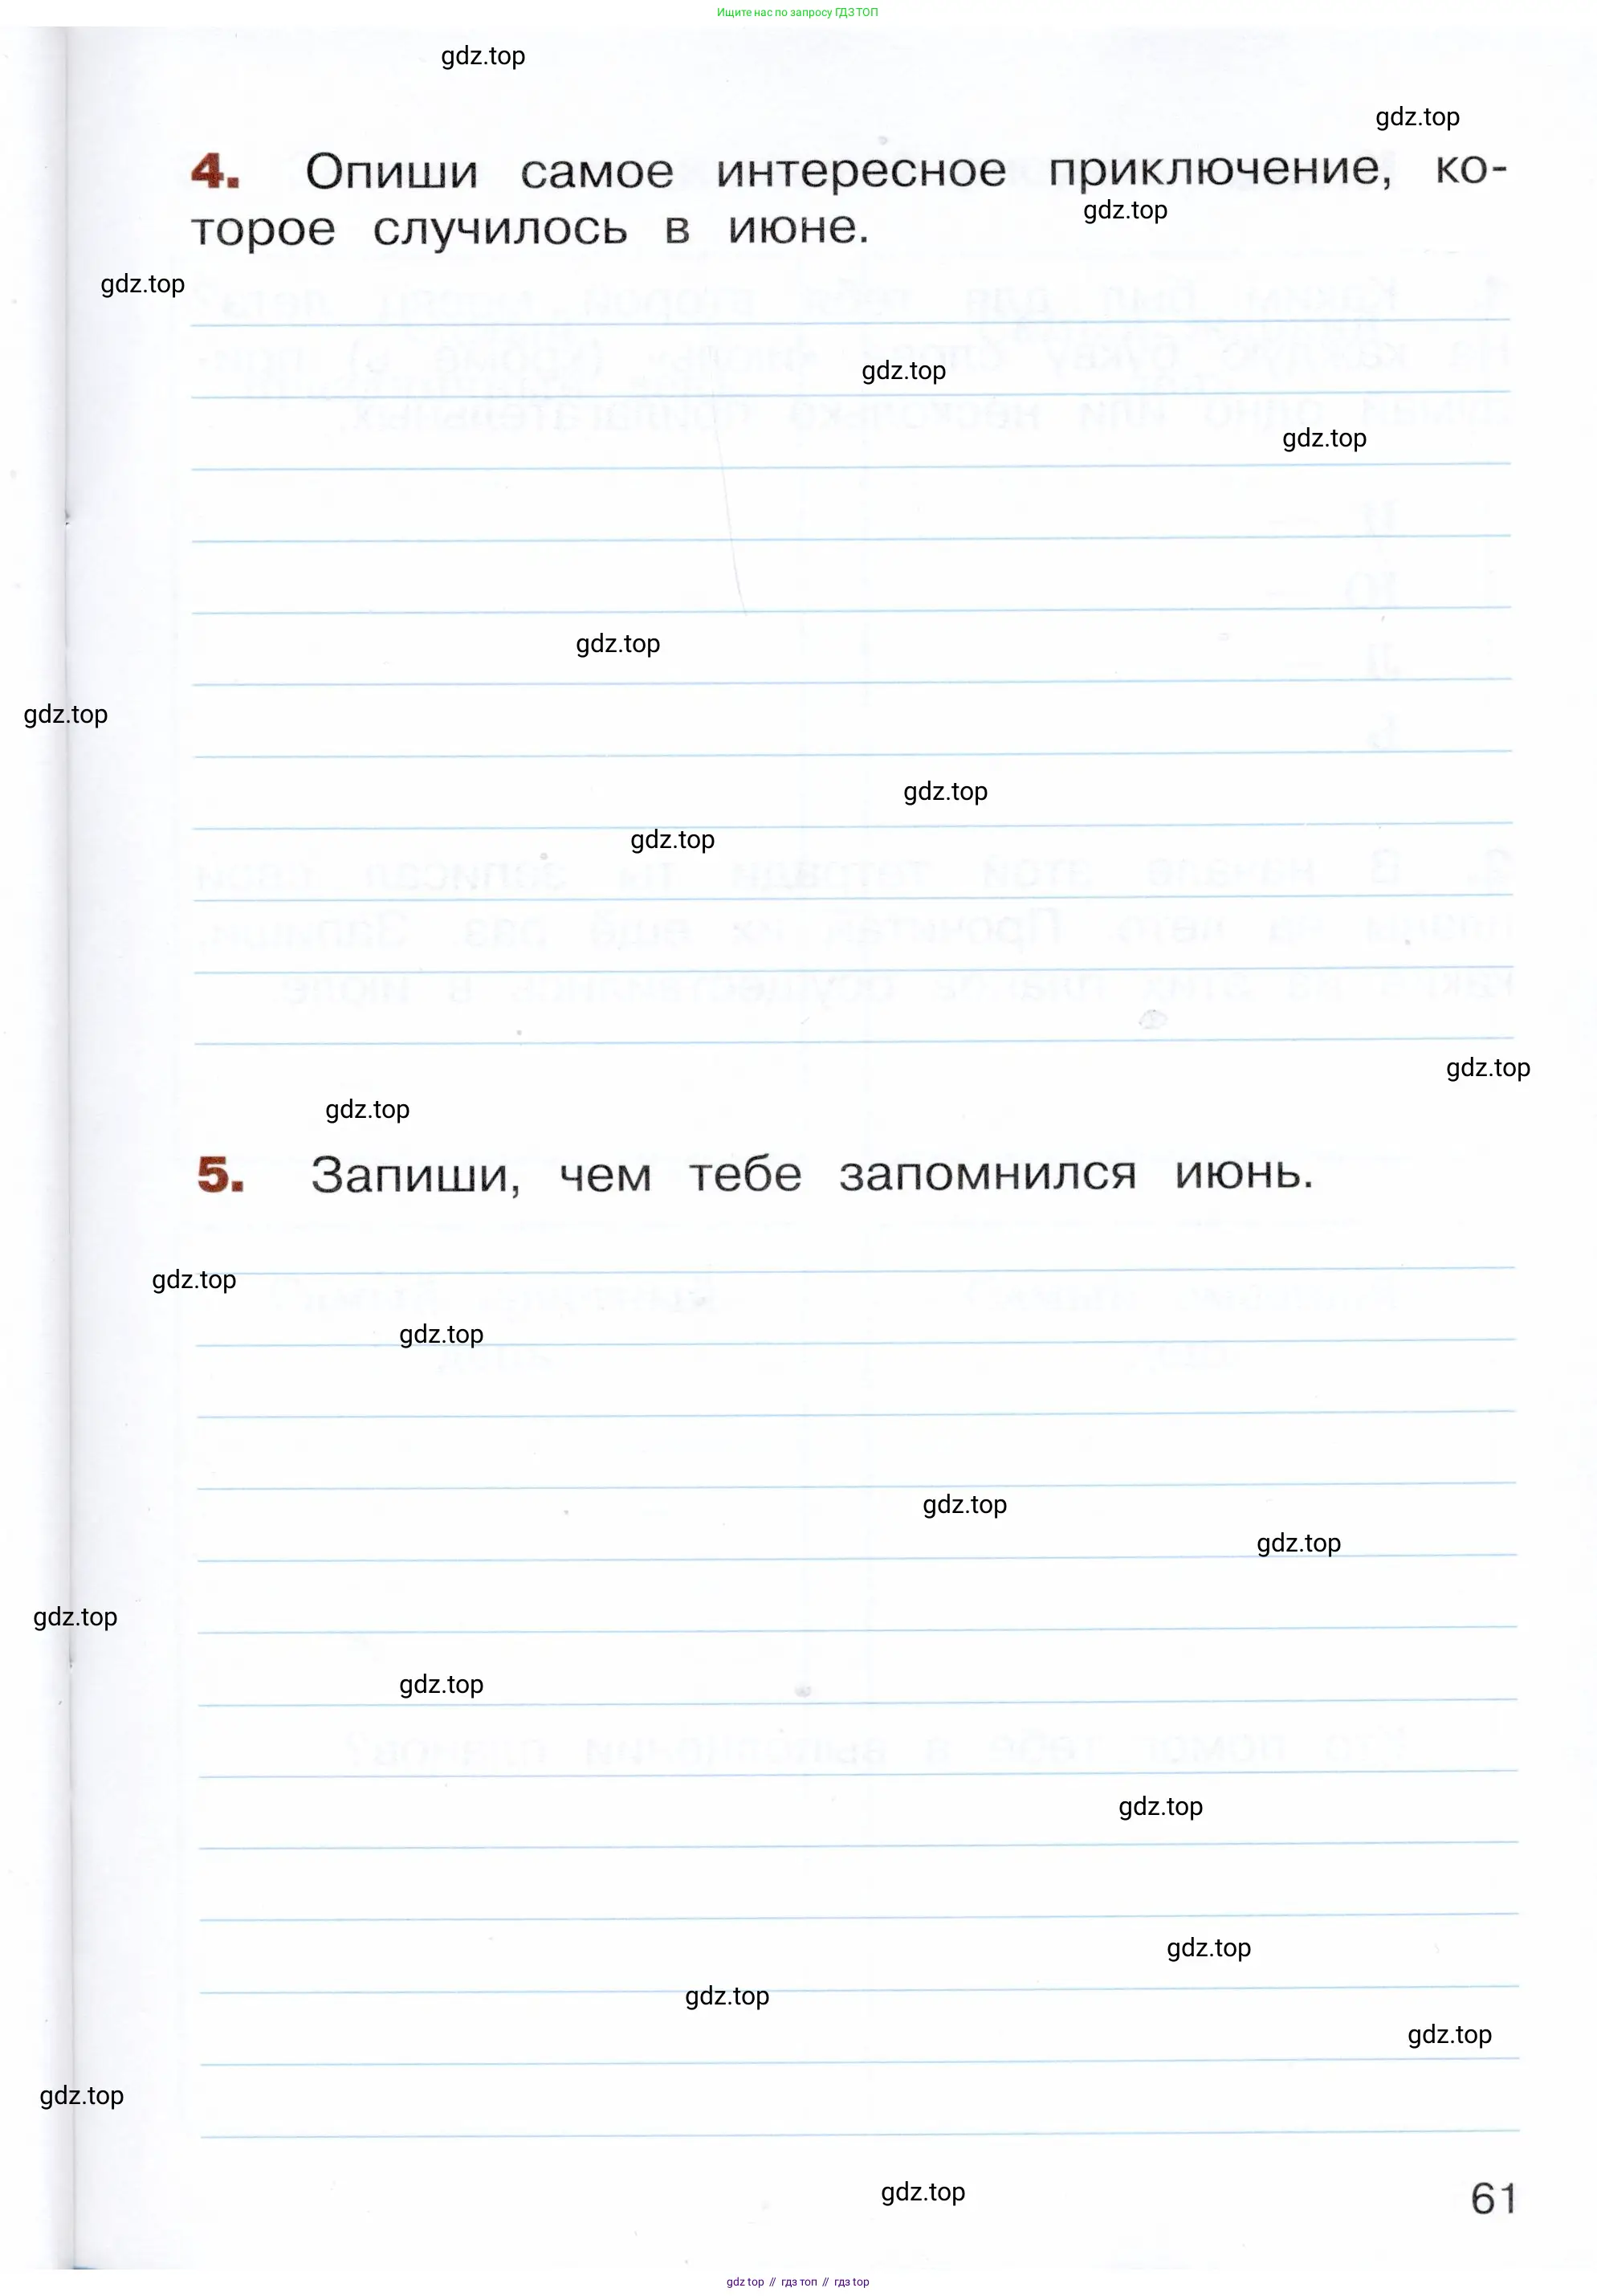 Ищите нас по запросу ГДЗ ТОП
gdz.top
gdz.top
4. Опиши самое интересное приключение, ко-
gdz.top
торое случилось в июне.
gdz.top
gdz.top
gdz.top
gdz.top
gdz.top
gdz.top
gdz.top
gdz.top
gdz.top
5. Запиши, чем тебе запомнился июнь.
gdz.top
gdz.top
gdz.top
gdz.top
gdz.top
gdz.top
gdz.top
gdz.top
gdz.top
gdz.top
gdz.top
gdz.top
61
gdz top // гдз топ // гдз top